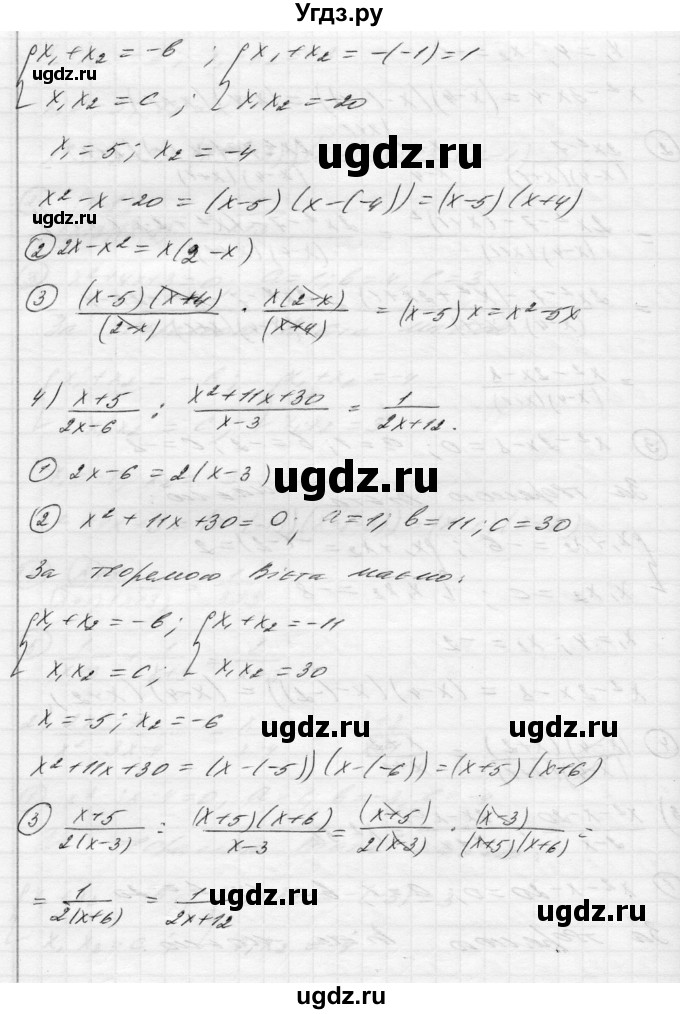 Угдз.ру
{x₁ + x₂ = -в ; {x₁ + x₂ = -(-1) = 1
ugdz.ru
x₁x₂ = c ; x₁x₂ = -20
x₁ = 5 ; x₂ = -4
ugdz.ru
x² - x - 20 = (x-5)(x-(-4)) = (x-5)(x+4)
ugdz.ru
② 2x - x² = x(2-x)
③ (x-5)(x+4)/(2-x) · x(2-x)/(x+4) = (x-5)x = x² - 5x
4) x+5/2x-6 : x²+11x+30/x-3 = 1/2x+12.
① 2x - 6 = 2(x-3)
ugdz.ru
ugdz.ru
② x² + 11x + 30 = 0 ; a = 1; в = 11; c = 30
За теоремою Вієта маємо:
{x₁ + x₂ = -в ; {x₁ + x₂ = -11
x₁x₂ = c ; x₁x₂ = 30
x₁ = -5 ; x₂ = -6
ugdz.ru
ugdz.ru
x² + 11x + 30 = (x-(-5))(x-(-6)) = (x+5)(x+6)
③ x+5/2(x-3) : (x+5)(x+6)/x-3 = (x+5)/2(x-3) · (x-3)/(x+5)(x+6) =
= 1/2(x+6) = 1/2x+12
ugdz.ru
ugdz.ru
ugdz.ru